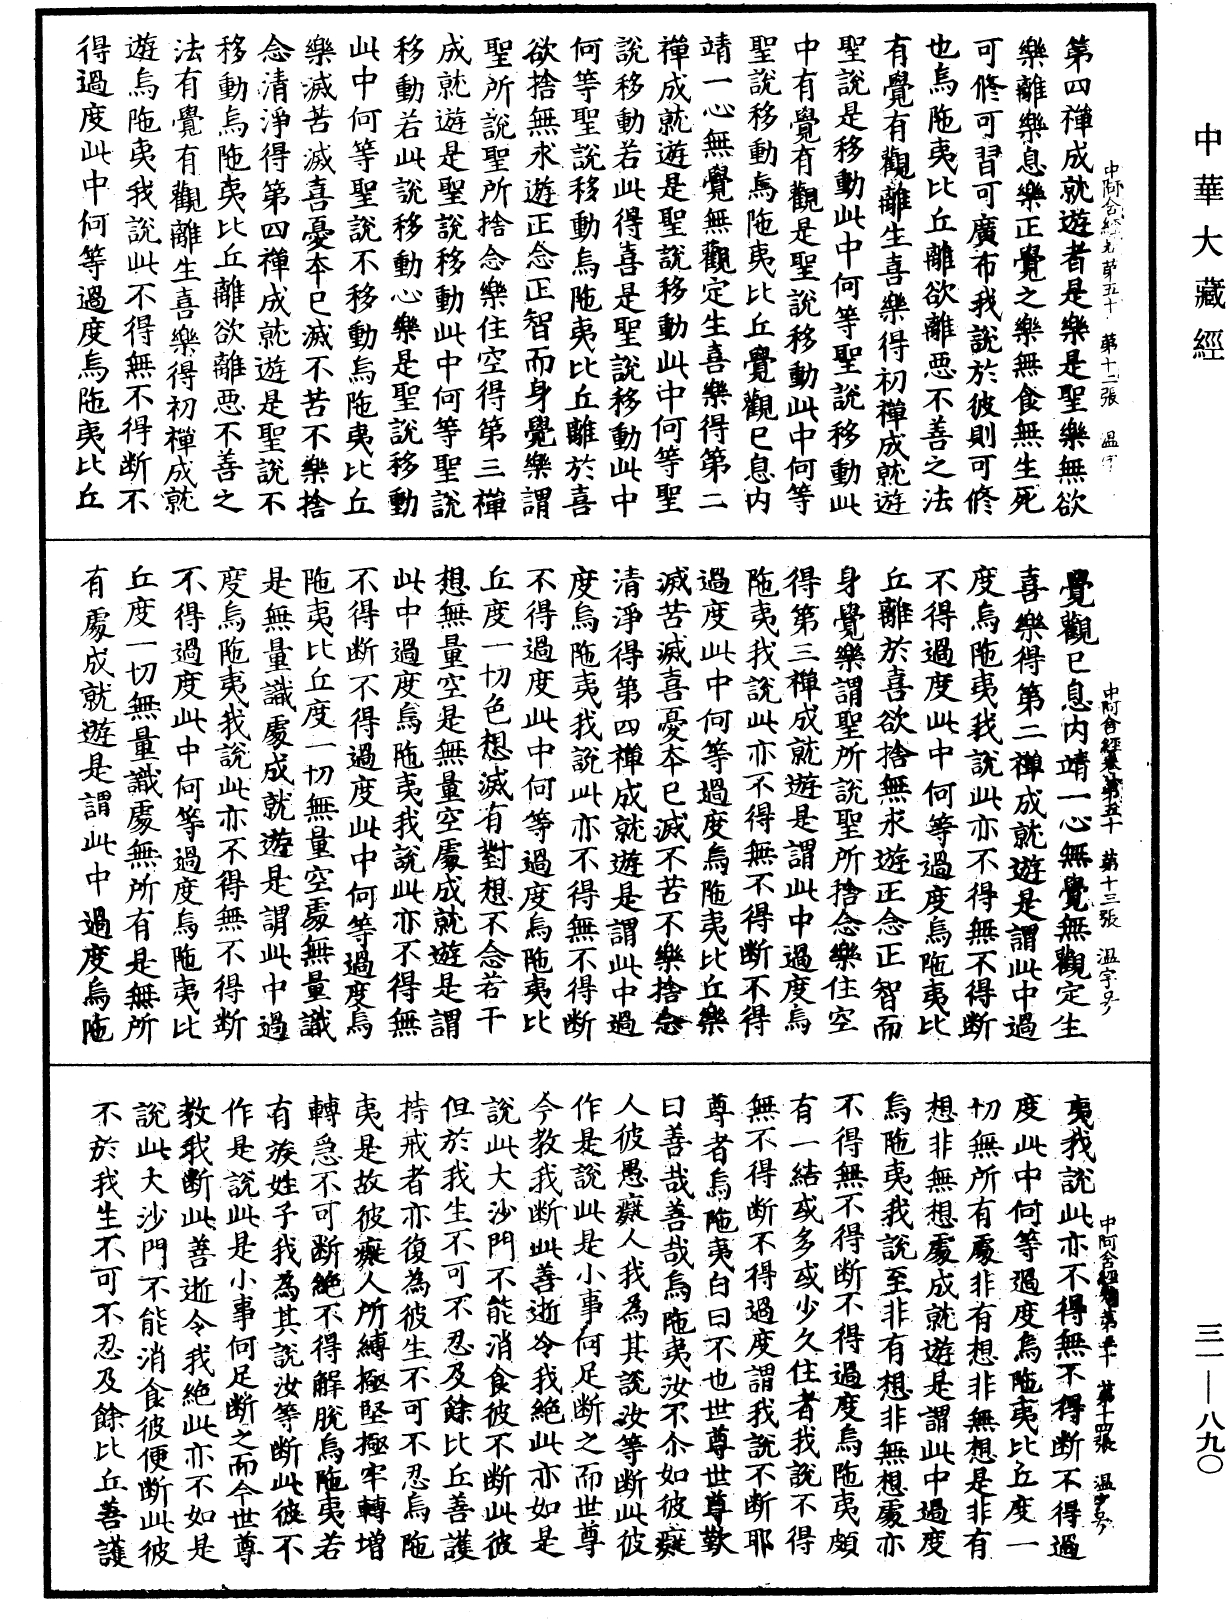 中華大藏經
第四禪成就遊者是樂是聖樂無欲
樂離樂息樂正覺之樂無食無生死
可修可習可廣布我說於彼則可修
也烏陁夷比丘離欲離惡不善之法
有覺有觀離生喜樂得初禪成就遊
聖說是移動此中何等聖說移動此
中有覺有觀是聖說移動此中何等
聖說移動烏陁夷比丘覺觀已息內
靖一心無覺無觀定生喜樂得第二
禪成就遊是聖說移動此中何等聖
說移動若此得喜是聖說移動此中
何等聖說移動烏陁夷比丘離於喜
欲捨無求遊正念正智而身覺樂謂
聖所說聖所捨念樂住空得第三禪
成就遊是聖說移動此中何等聖說
移動若此說移動心樂是聖說移動
此中何等聖說不移動烏陁夷比丘
樂滅苦滅喜憂本已滅不苦不樂捨
念清淨得第四禪成就遊是聖說不
移動烏陁夷比丘離欲離惡不善之
法有覺有觀離生喜樂得初禪成就
遊烏陁夷我說此不得無不得斷不
得過度此中何等過度烏陁夷比丘
中阿含經卷第五十 第十二張 溫字
覺觀已息內靖一心無覺無觀定生
喜樂得第二禪成就遊是謂此中過
度烏陁夷我說此亦不得無不得斷
不得過度此中何等過度烏陁夷比
丘離於喜欲捨無求遊正念正智而
身覺樂謂聖所說聖所捨念樂住空
得第三禪成就遊是謂此中過度烏
陁夷我說此亦不得無不得斷不得
過度此中何等過度烏陁夷比丘樂
滅苦滅喜憂本已滅不苦不樂捨念
清淨得第四禪成就遊是謂此中過
度烏陁夷我說此亦不得無不得斷
不得過度此中何等過度烏陁夷比
丘度一切色想滅有對想不念若干
想無量空是無量空處成就遊是謂
此中過度烏陁夷我說此亦不得無
不得斷不得過度此中何等過度烏
陁夷比丘度一切無量空處無量識
是無量識處成就遊是謂此中過
度烏陁夷我說此亦不得無不得斷
不得過度此中何等過度烏陁夷比
丘度一切無量識處無所有是無所
有處成就遊是謂此中過度烏陁
中阿含經卷第五十 第十三張 溫字号
夷我說此亦不得無不得斷不得過
度此中何等過度烏陁夷比丘度一
切無所有處非有想非無想是非有
想非無想處成就遊是謂此中過度
烏陁夷我說至非有想非無想處亦
不得無不得斷不得過度烏陁夷頗
有一結或多或少久住者我說不得
無不得斷不得過度謂我說不斷耶
尊者烏陁夷白曰不也世尊世尊歎
曰善哉善哉烏陁夷汝不尒如彼癡
人彼愚癡人我為其說汝等斷此彼
作是說此是小事何足斷之而世尊
今教我斷此善逝令我絕此亦如是
說此大沙門不能消食彼不斷此彼
但於我生不可不忍及餘比丘善護
持戒者亦復為彼生不可不忍烏陁
夷是故彼癡人所縛極堅極牢轉增
轉急不可斷絕不得解脫烏陁夷若
有族姓子我為其說汝等斷此彼不
作是說此是小事何足斷之而今世尊
教我斷此善逝令我絕此亦不如是
說此大沙門不能消食彼便斷此彼
不於我生不可不忍及餘比丘善護
中阿含經卷第五十 第十四張 溫字号
三一—八九〇